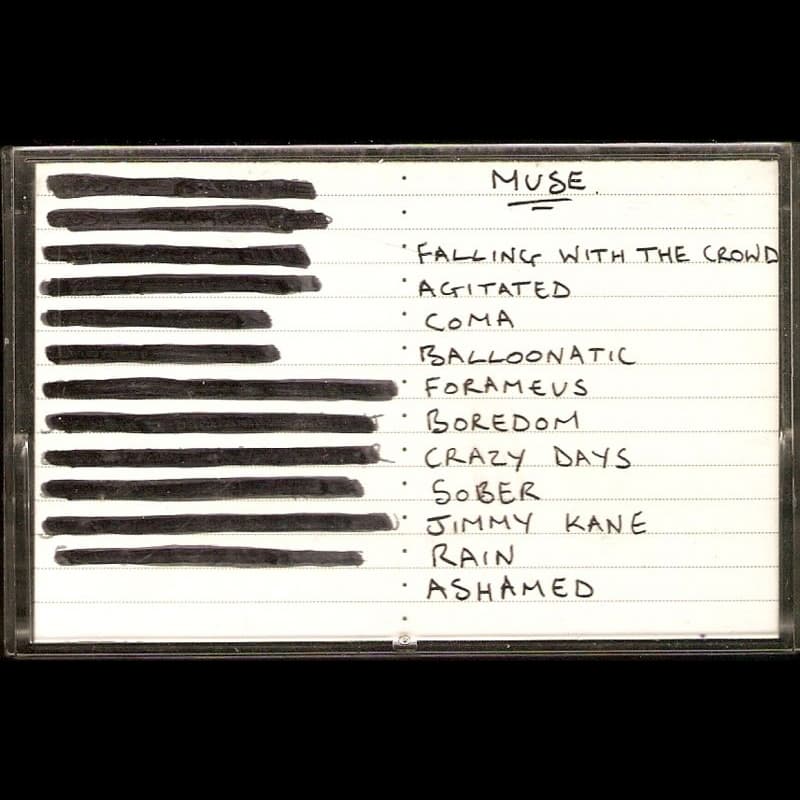 MUSE.
FALLING WITH THE CROWD
AGITATED
COMA
BALLOONATIC
FORAMEUS
BOREDOM
CRAZY DAYS
SOBER
JIMMY KANE
RAIN
ASHAMED